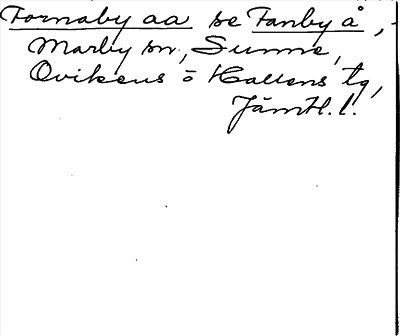 Fornaby aa se Fanby å,
Marby sn, Sunne,
Ovikens o Hallens tg,
Jämtl. l.